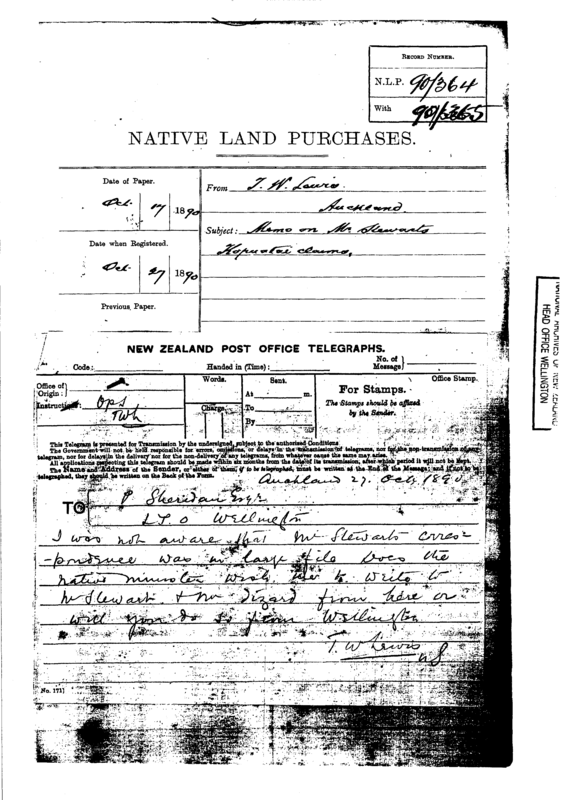 RECORD NUMBER.
N.L.P. 90/364
With 90/
NATIVE LAND PURCHASES.
Date of Paper.
Oct. 27 1890
Date when Registered.
Oct. 27 1890
Previous Paper.
From T. W. Lewis.
Auckland.
Subject: Memo on Mr Stewarts
claims.
NATIONAL ARCHIVES OF NEW ZEALAND
HEAD OFFICE WELLINGTON
NEW ZEALAND POST OFFICE TELEGRAPHS.
Code:
Handed in (Time):
No. of Message
Office of Origin:
Instructions:
Words.
Charge
Sent.
At m.
To
By
For Stamps.
The Stamps should be affixed
by the Sender.
Office Stamp.
This Telegram is presented for Transmission by the undersigned, subject to the authorised Conditions.
The Government will not be held responsible for errors, omissions, or delays in the transmission of telegrams, nor for the non-transmission of any
telegram, nor for delays in the delivery nor for the non-delivery of any telegrams, from whatever cause the same may arise.
All applications respecting this telegram should be made within six months from the date of its transmission, after which period it will not be kept.
The Name and Address of the Sender, or either of them, if to be telegraphed, must be written at the End of the Message; and if not to be
telegraphed, they should be written on the Back of the Form.
Auckland 27. Oct, 1890
TO P Sheridan Esqr
L.P.O Wellington
I was not aware that Mr Stewarts corres-
-pondence was in large file Does the
native minister wish me to write to
Mr Stewart & Mr from here or
will you do so from Wellington
T. W Lewis
U S
No. 171]